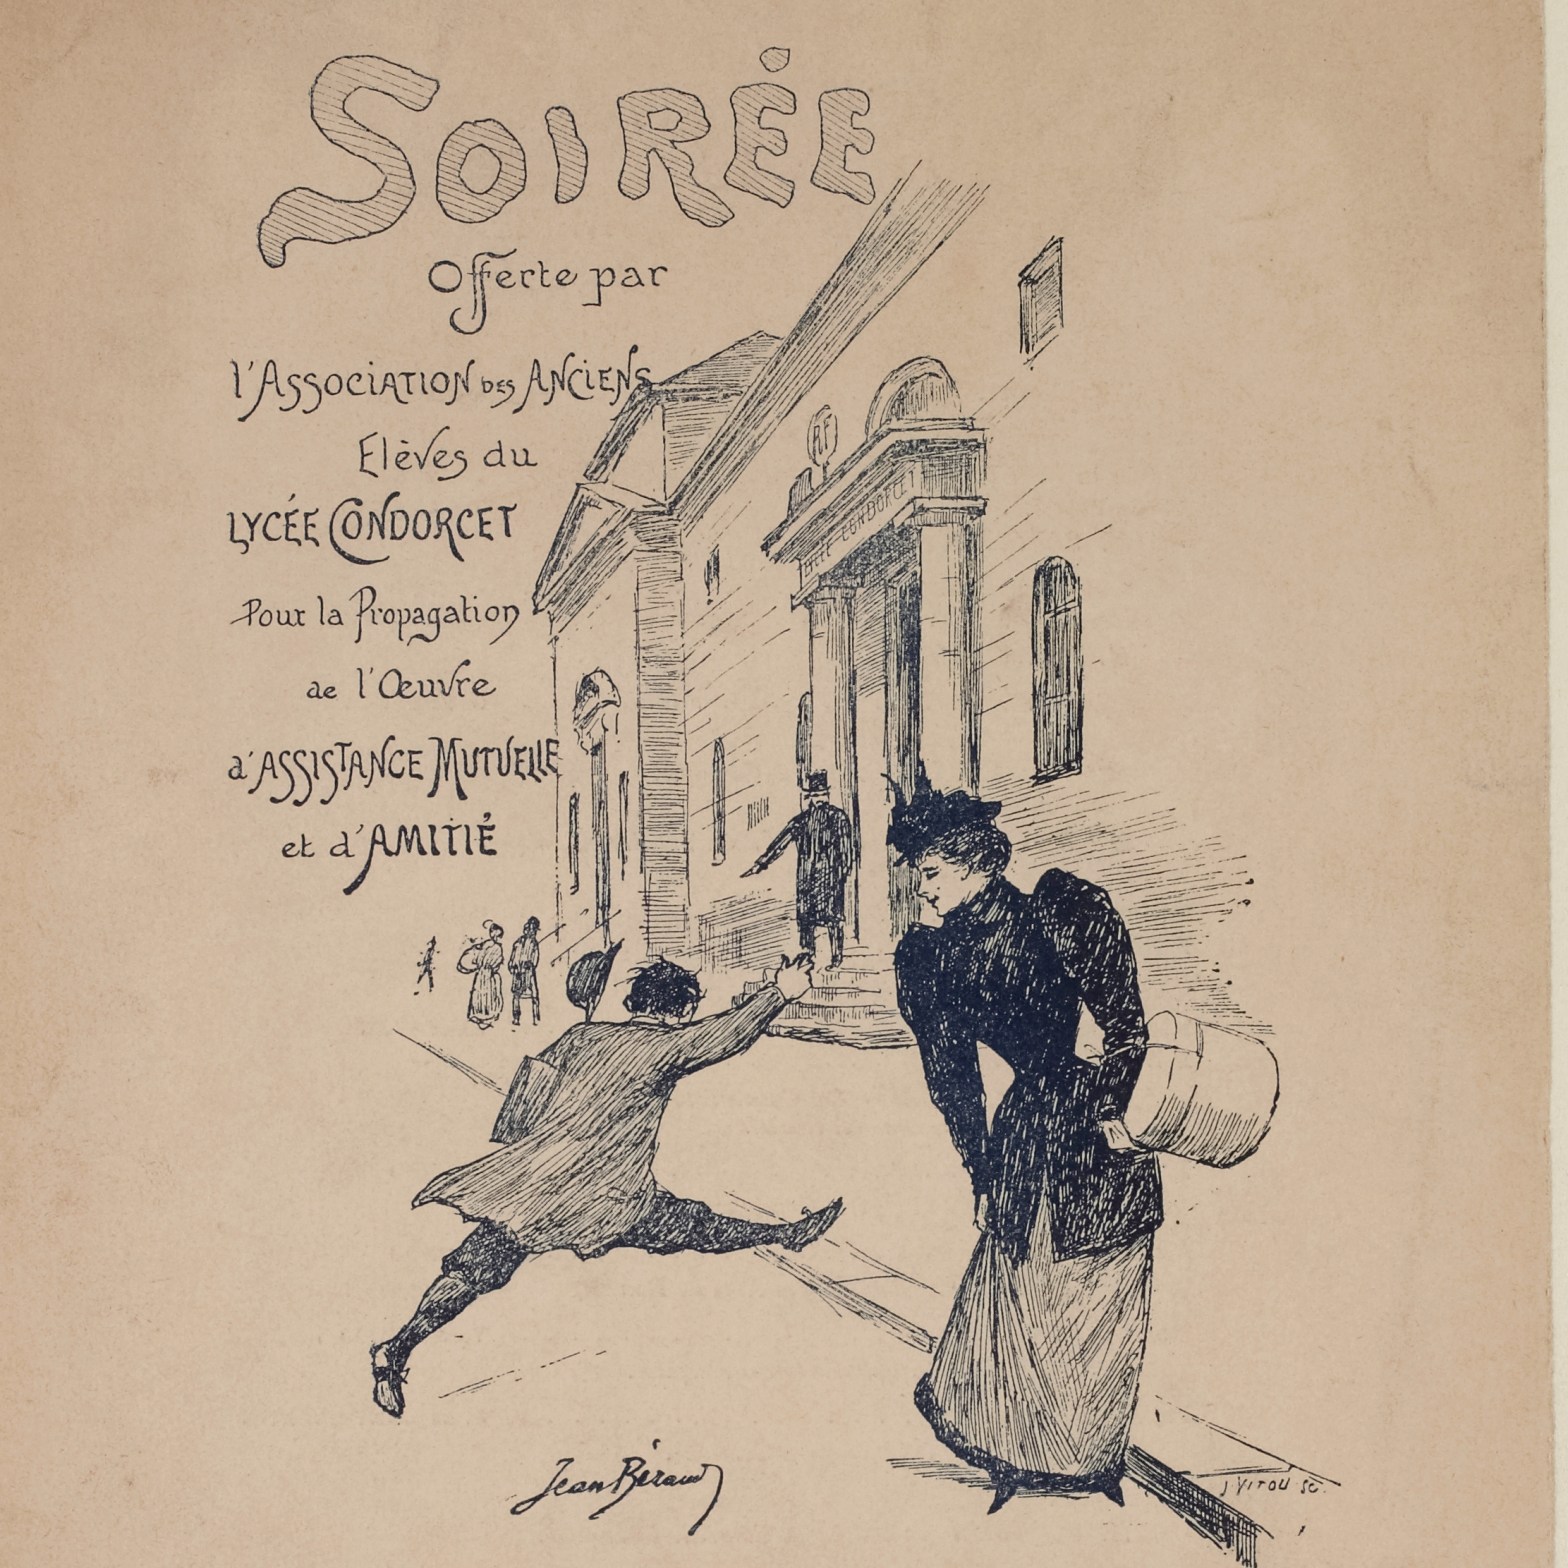 SOIRÉE
Offerte par
l'ASSOCIATION DES ANCIENS
Elèves du
LYCÉE CONDORCET
Pour la Propagation
de l'Œuvre
d'ASSISTANCE MUTUELLE
et d'AMITIÉ
CONDORCET
Jean Béraud
J VITOU SC.